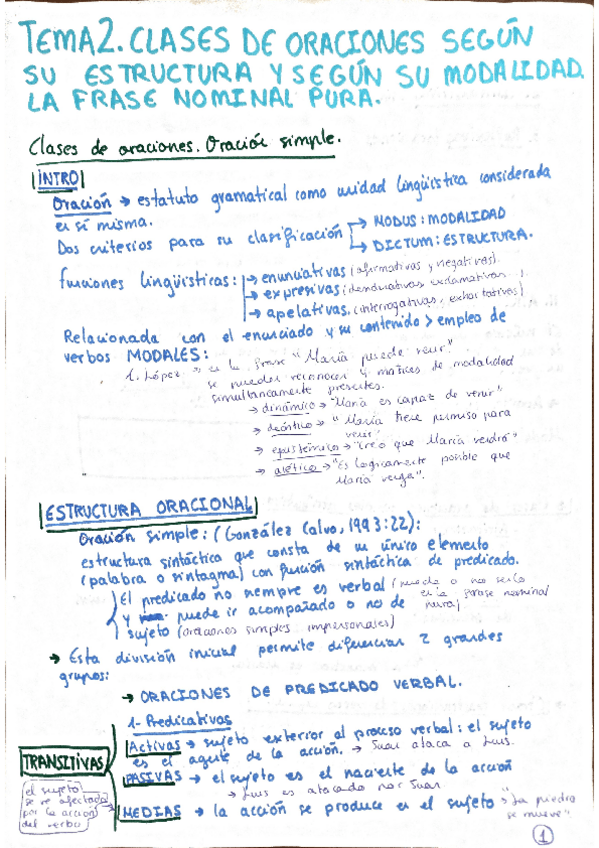 TEMA 2. CLASES DE ORACIONES SEGÚN
SU ESTRUCTURA Y SEGÚN SU MODALIDAD.
LA FRASE NOMINAL PURA.
Clases de oraciones. Oración simple.
INTRO
Oración → estatuto gramatical como unidad lingüística considerada
en sí misma.
Dos criterios para su clasificación → MODUS: MODALIDAD
→ DICTUM: ESTRUCTURA.
funciones lingüísticas: → enunciativas (afirmativas y negativas).
→ expresivas (desiderativas, exclamativas...)
→ apelativas. (interrogativas, exhortativas)
Relacionada con el enunciado y su contenido > empleo de
verbos MODALES:
A. López → en la frase "María puede venir"
se pueden reconocer 4 matices de modalidad
simultáneamente presentes.
→ dinámico → "María es capaz de venir"
→ deóntico → "María tiene permiso para
venir"
→ epistémico → "Creo que María vendrá"
→ alético → "Es lógicamente posible que
María venga".
ESTRUCTURA ORACIONAL
Oración simple: (González Calvo, 1993:22):
estructura sintáctica que consta de un único elemento
(palabra o sintagma) con función sintáctica de predicado.
El predicado no siempre es verbal (puede o no serlo
en la frase nominal
pura)
y puede ir acompañado o no de
sujeto (oraciones simples impersonales)
→ Esta división inicial permite diferenciar 2 grandes
grupos:
→ ORACIONES DE PREDICADO VERBAL.
1- Predicativas
TRANSITIVAS
Activas → sujeto exterior al proceso verbal: el sujeto
es el agente de la acción. → Juan ataca a Luis.
PASIVAS → el sujeto es el paciente de la acción
→ Luis es atacado por Juan.
el sujeto
se ve afectado
por la acción
del verbo
MEDIAS → la acción se produce en el sujeto → "La piedra
se mueve"
1